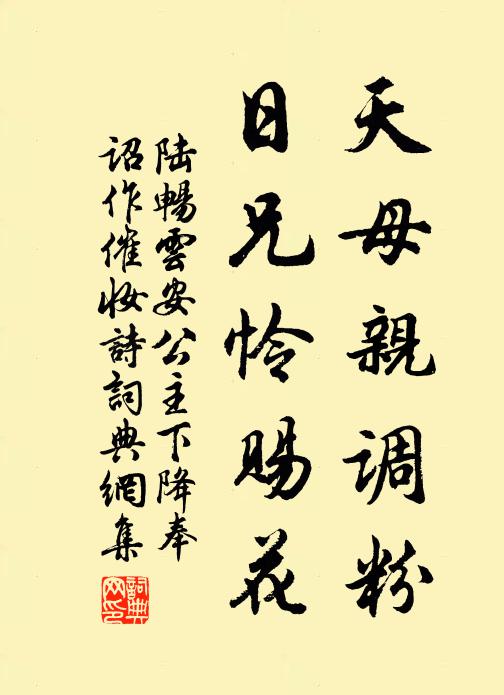 天母親調粉
日兄怜賜花
陆暢雲安公主下降奉
詔作催妆詩詞典網集
詞典網印